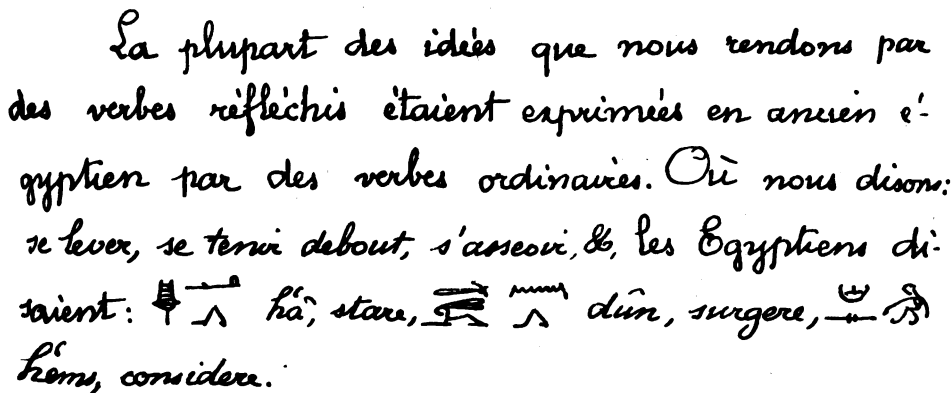 La plupart des idées que nous rendons par
des verbes réfléchis étaient exprimées en ancien é-
gyptien par des verbes ordinaires. Où nous disons:
se lever, se tenir debout, s'asseoir, &, les Egyptiens di-
saient: ḥâ, stare, dûn, surgere,
ḥems, considere.